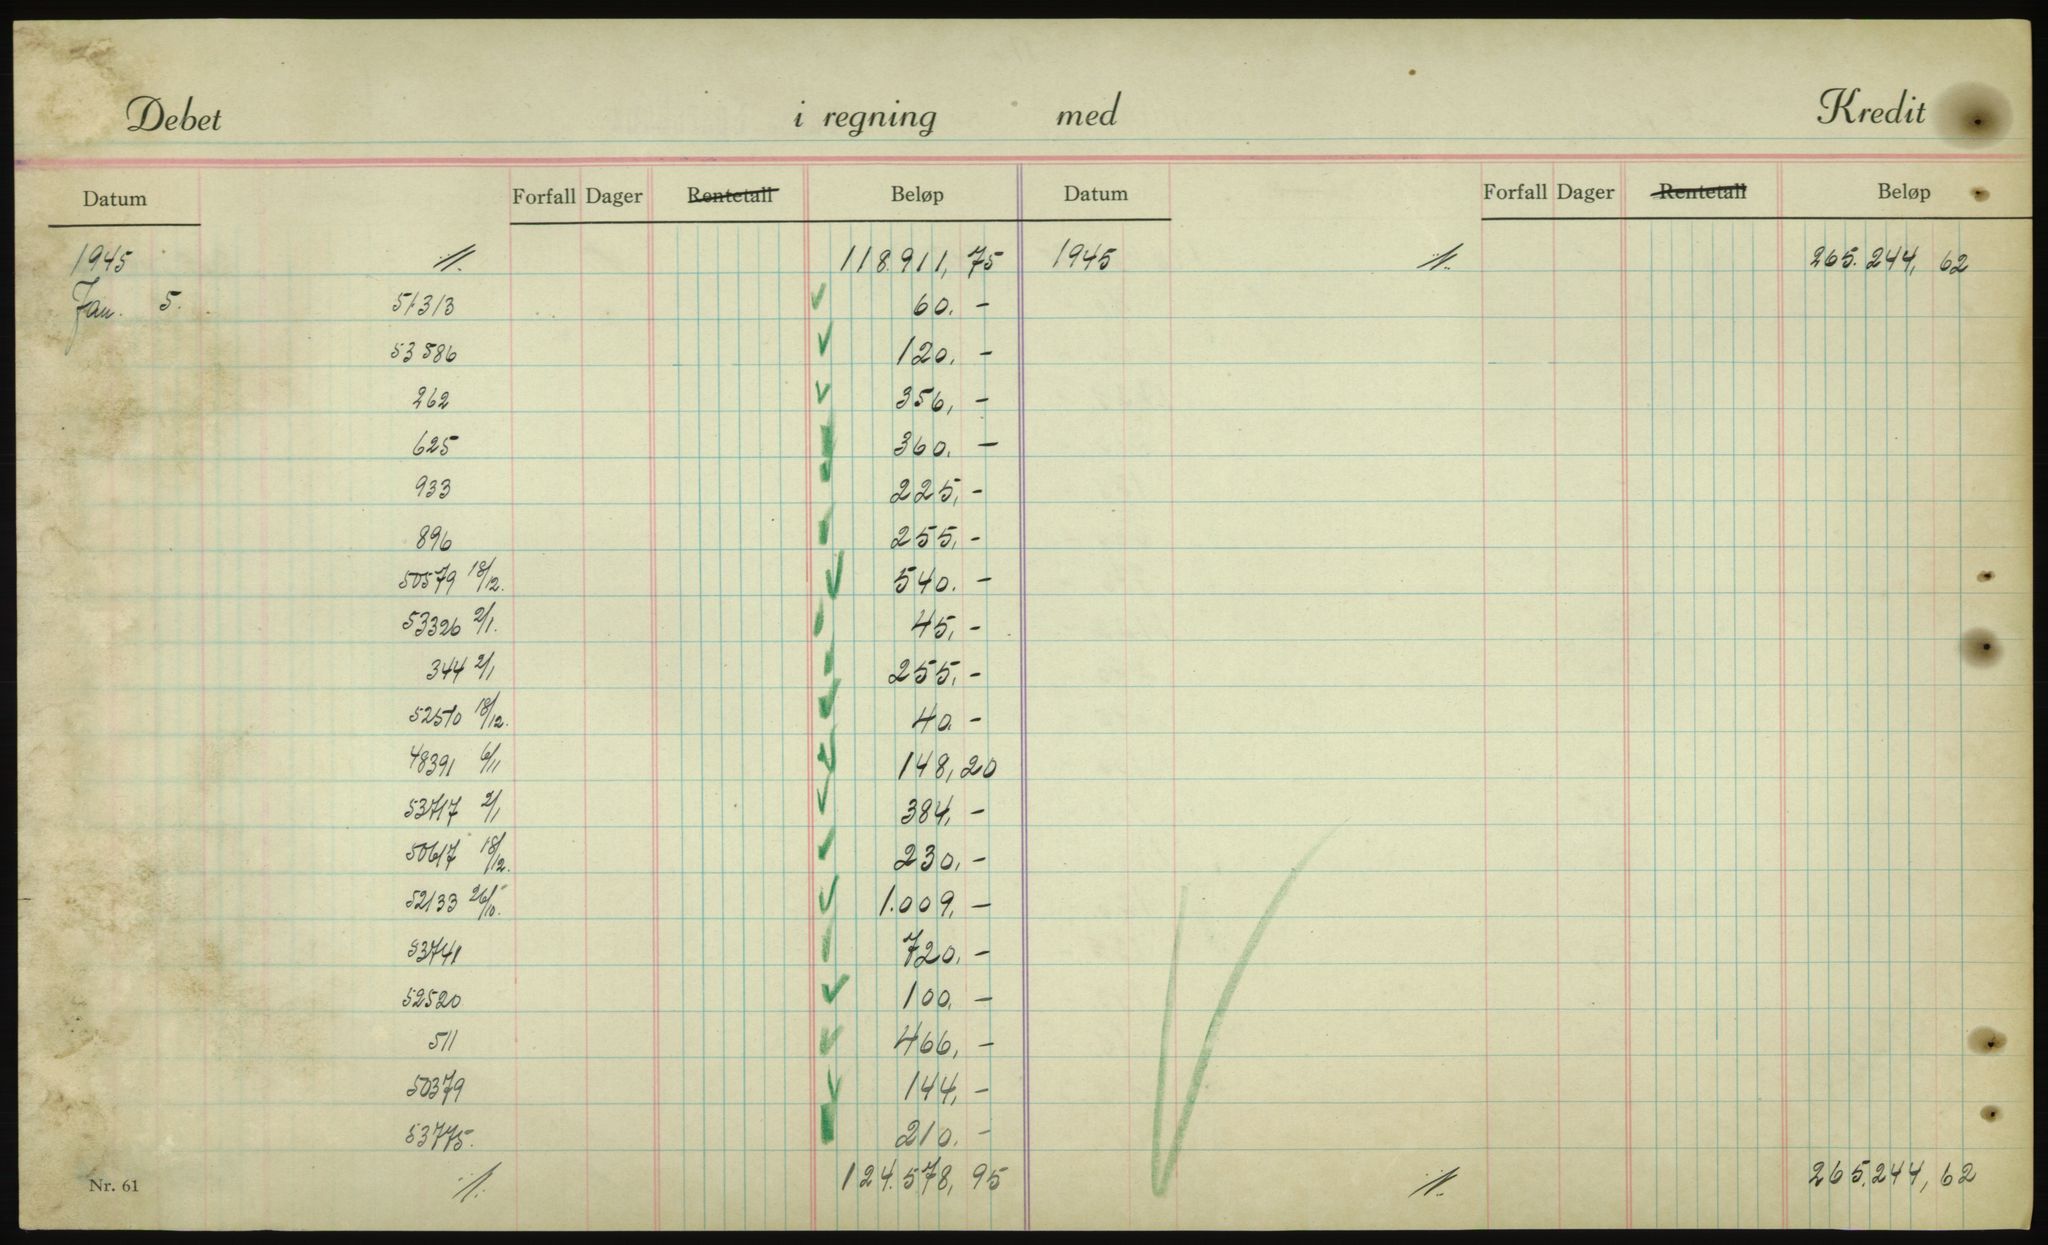 Debet i regning med Kredit
Datum Forfall Dager Rentetall Beløp Datum Forfall Dager Rentetall Beløp
1945 118.911,75 1945 265.244,62
Jan. 5. 51313 60.-
53586 120.-
262 356,-
625 360.-
933 225,-
896 255,-
50579 18/12. 540.-
53326 2/1. 45,-
344 2/1 255,-
52510 18/12. 40.-
48391 6/11 148,20
53717 2/1 384,-
50617 18/12. 230.-
52133 26/10. 1.009,-
53741 720.-
52520 100.-
511 466,-
50379 144,-
53775. 210.-
Nr. 61 124.578,95 265.244,62